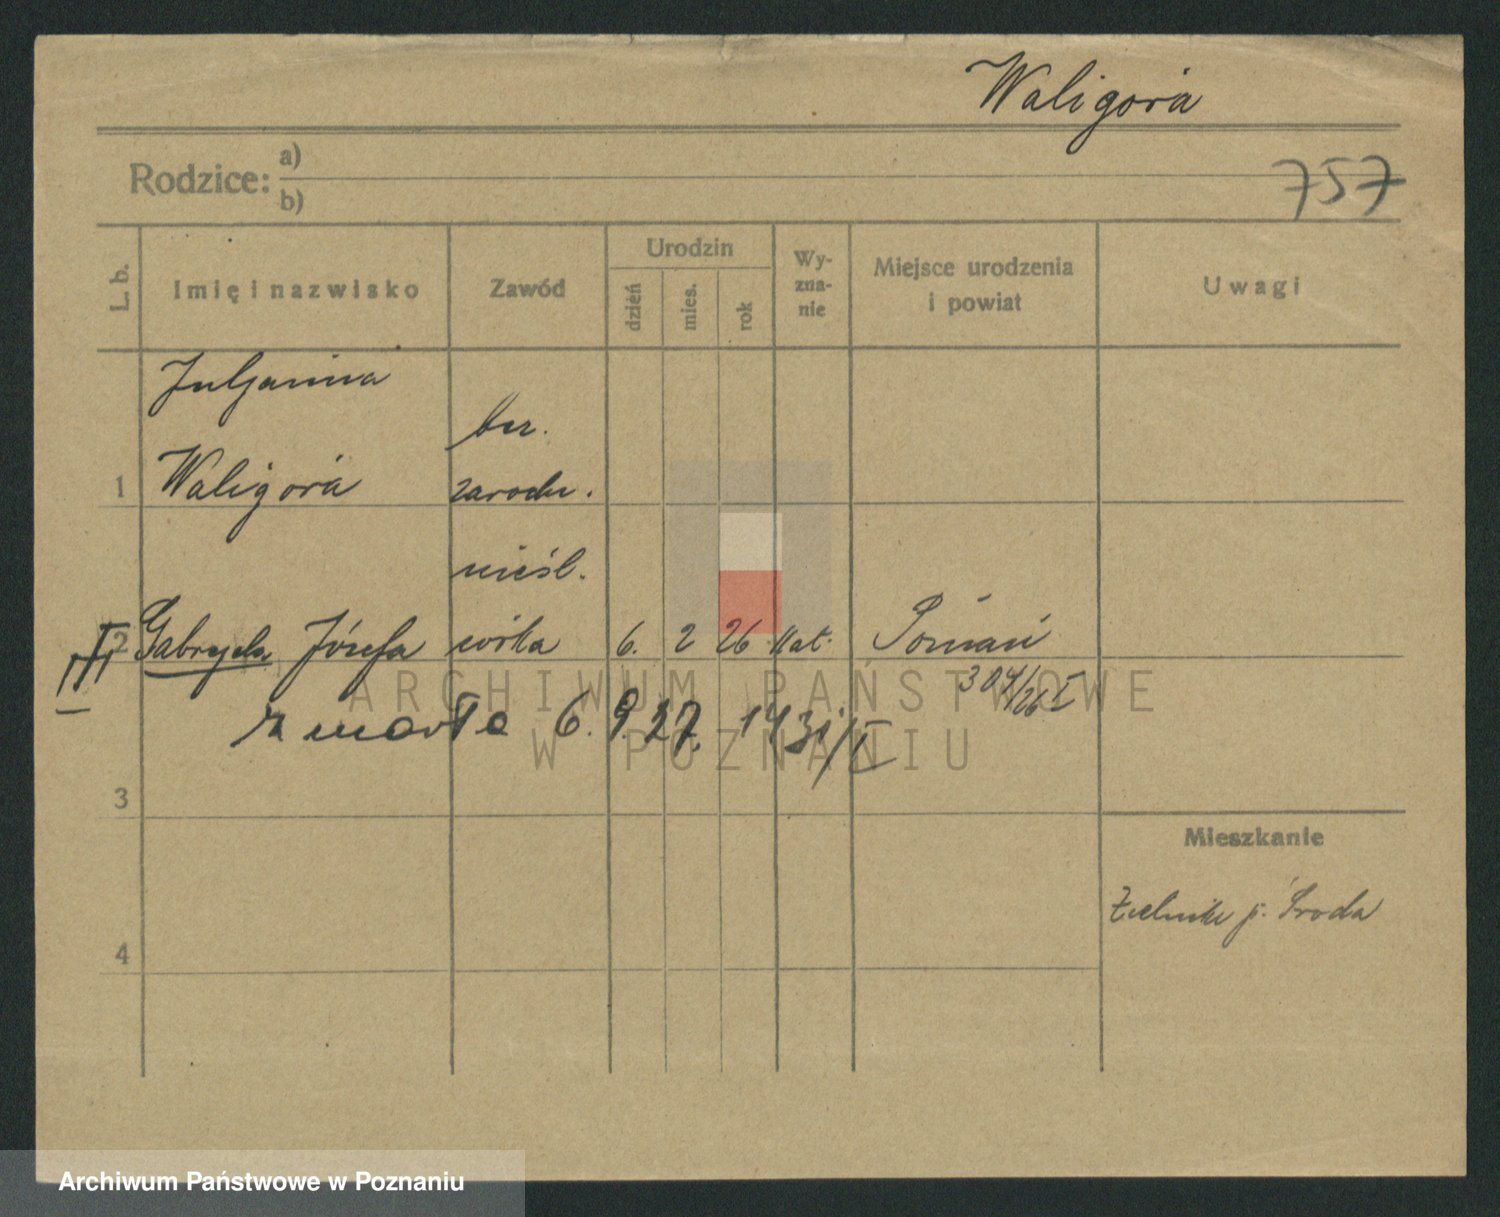 Waligóra
757
Rodzice: a)
b)
L. b.
Imię i nazwisko
Zawód
Urodzin
dzień
mies.
rok
Wy-
zna-
nie
Miejsce urodzenia
i powiat
Uwagi
Juljanna
bez.
1 Waligóra zarodu.
nieśl.
III 2 Gabryela Józefa córka 6. 2 26 kat. Poznań
304/26 I
zmarła 6.9.27. 1431/I
3
Mieszkanie
p. Środa
4
ARCHIWUM PAŃSTWOWE
W POZNANIU
Archiwum Państwowe w Poznaniu